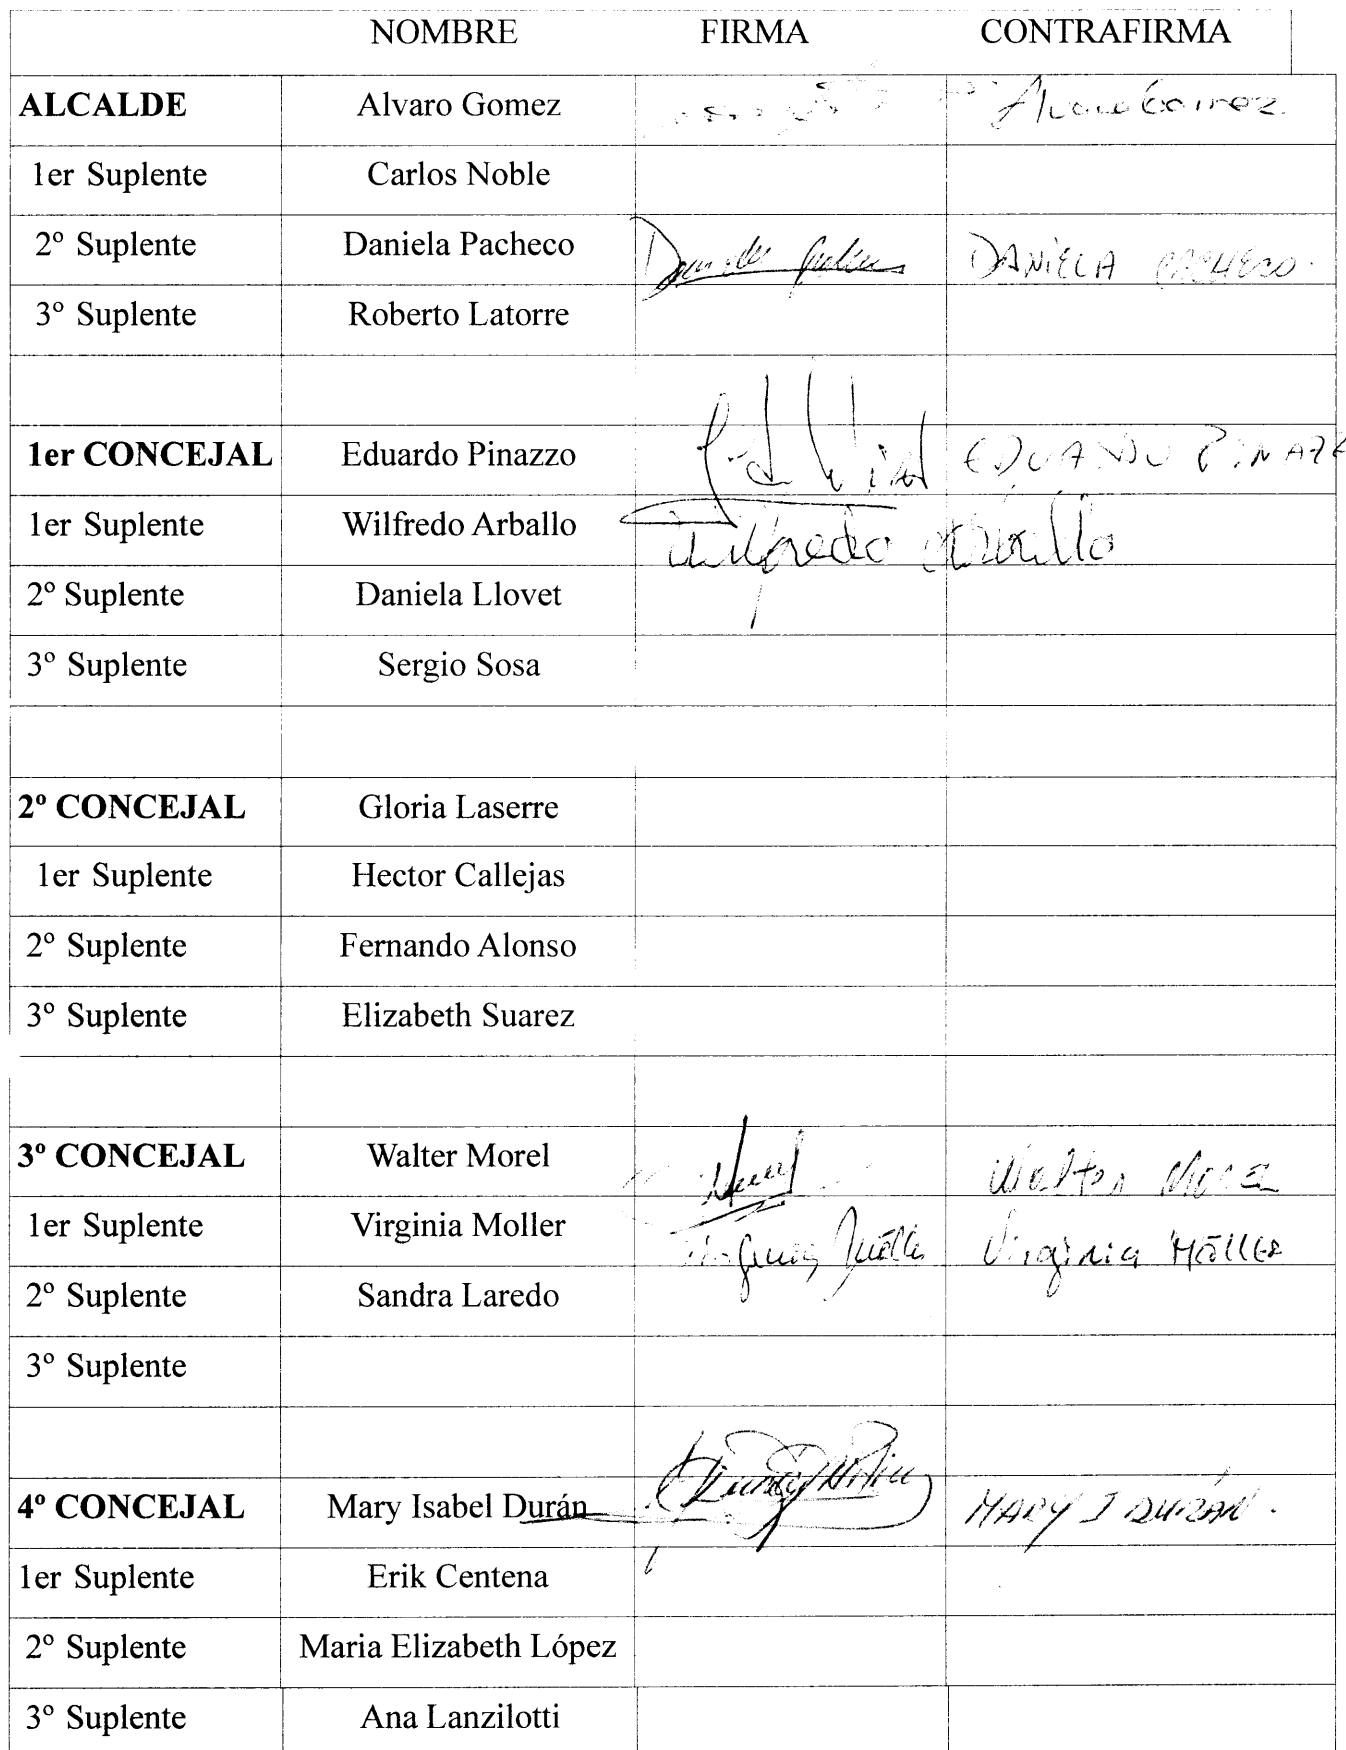 NOMBRE FIRMA CONTRAFIRMA
ALCALDE Alvaro Gomez Alvaro Gomez
1er Suplente Carlos Noble
2º Suplente Daniela Pacheco DANIELA PACHECO.
3º Suplente Roberto Latorre
1er CONCEJAL Eduardo Pinazzo EDUARDO
1er Suplente Wilfredo Arballo Wilfredo Arballo
2º Suplente Daniela Llovet
3º Suplente Sergio Sosa
2º CONCEJAL Gloria Laserre
1er Suplente Hector Callejas
2º Suplente Fernando Alonso
3º Suplente Elizabeth Suarez
3º CONCEJAL Walter Morel Walter Morel
1er Suplente Virginia Moller Virginia
2º Suplente Sandra Laredo
3º Suplente
4º CONCEJAL Mary Isabel Durán MARY I DURÁN.
1er Suplente Erik Centena
2º Suplente Maria Elizabeth López
3º Suplente Ana Lanzilotti